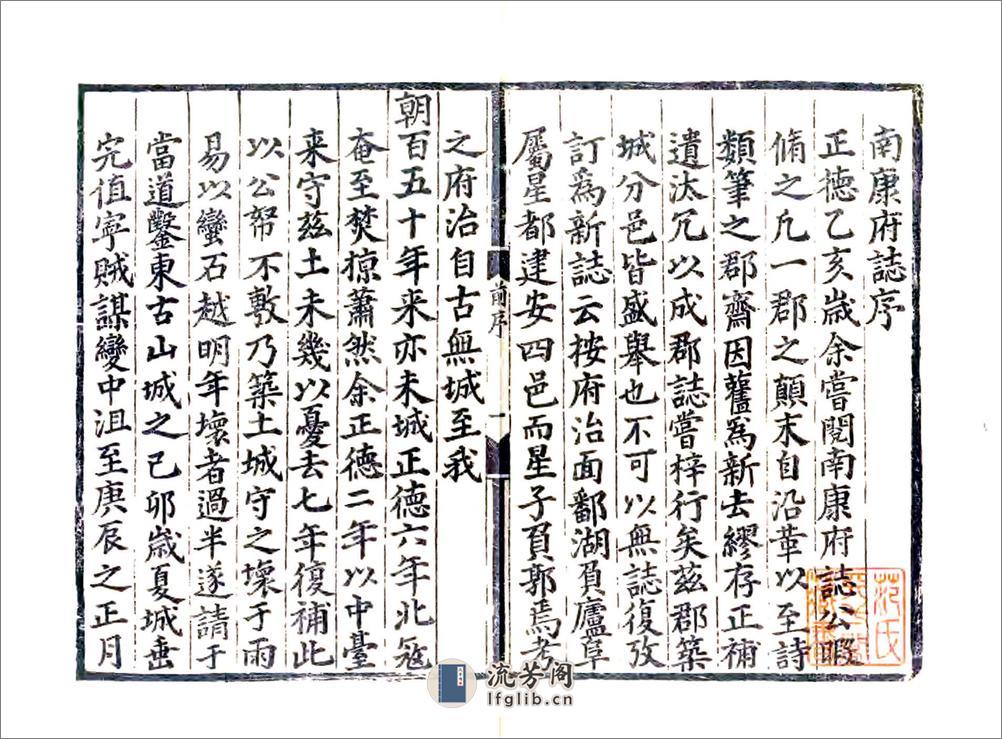 南康府誌序
正德乙亥歲余嘗閱南康府誌公暇
脩之凢一郡之顛末自沿革以至詩
類筆之郡齋因舊爲新去繆存正補
遺汰冗以成郡誌嘗梓行矣茲郡築
城分邑皆盛舉也不可以無誌復攷
訂爲新誌云按府治面鄱湖負廬阜
屬星都建安四邑而星子負郭焉考
之府治自古無城至我
朝百五十年来亦未城正德六年北寇
奄至焚掠蕭然余正德二年以中臺
来守茲土未幾以憂去七年復補此
以公帑不敷乃築土城守之壞于雨
易以蠻石越明年壞者過半遂請于
當道鑿東古山城之己卯歲夏城垂
完值寧賊謀變中沮至庚辰之正月
前序
一
范氏
流芳阁
lfglib.cn